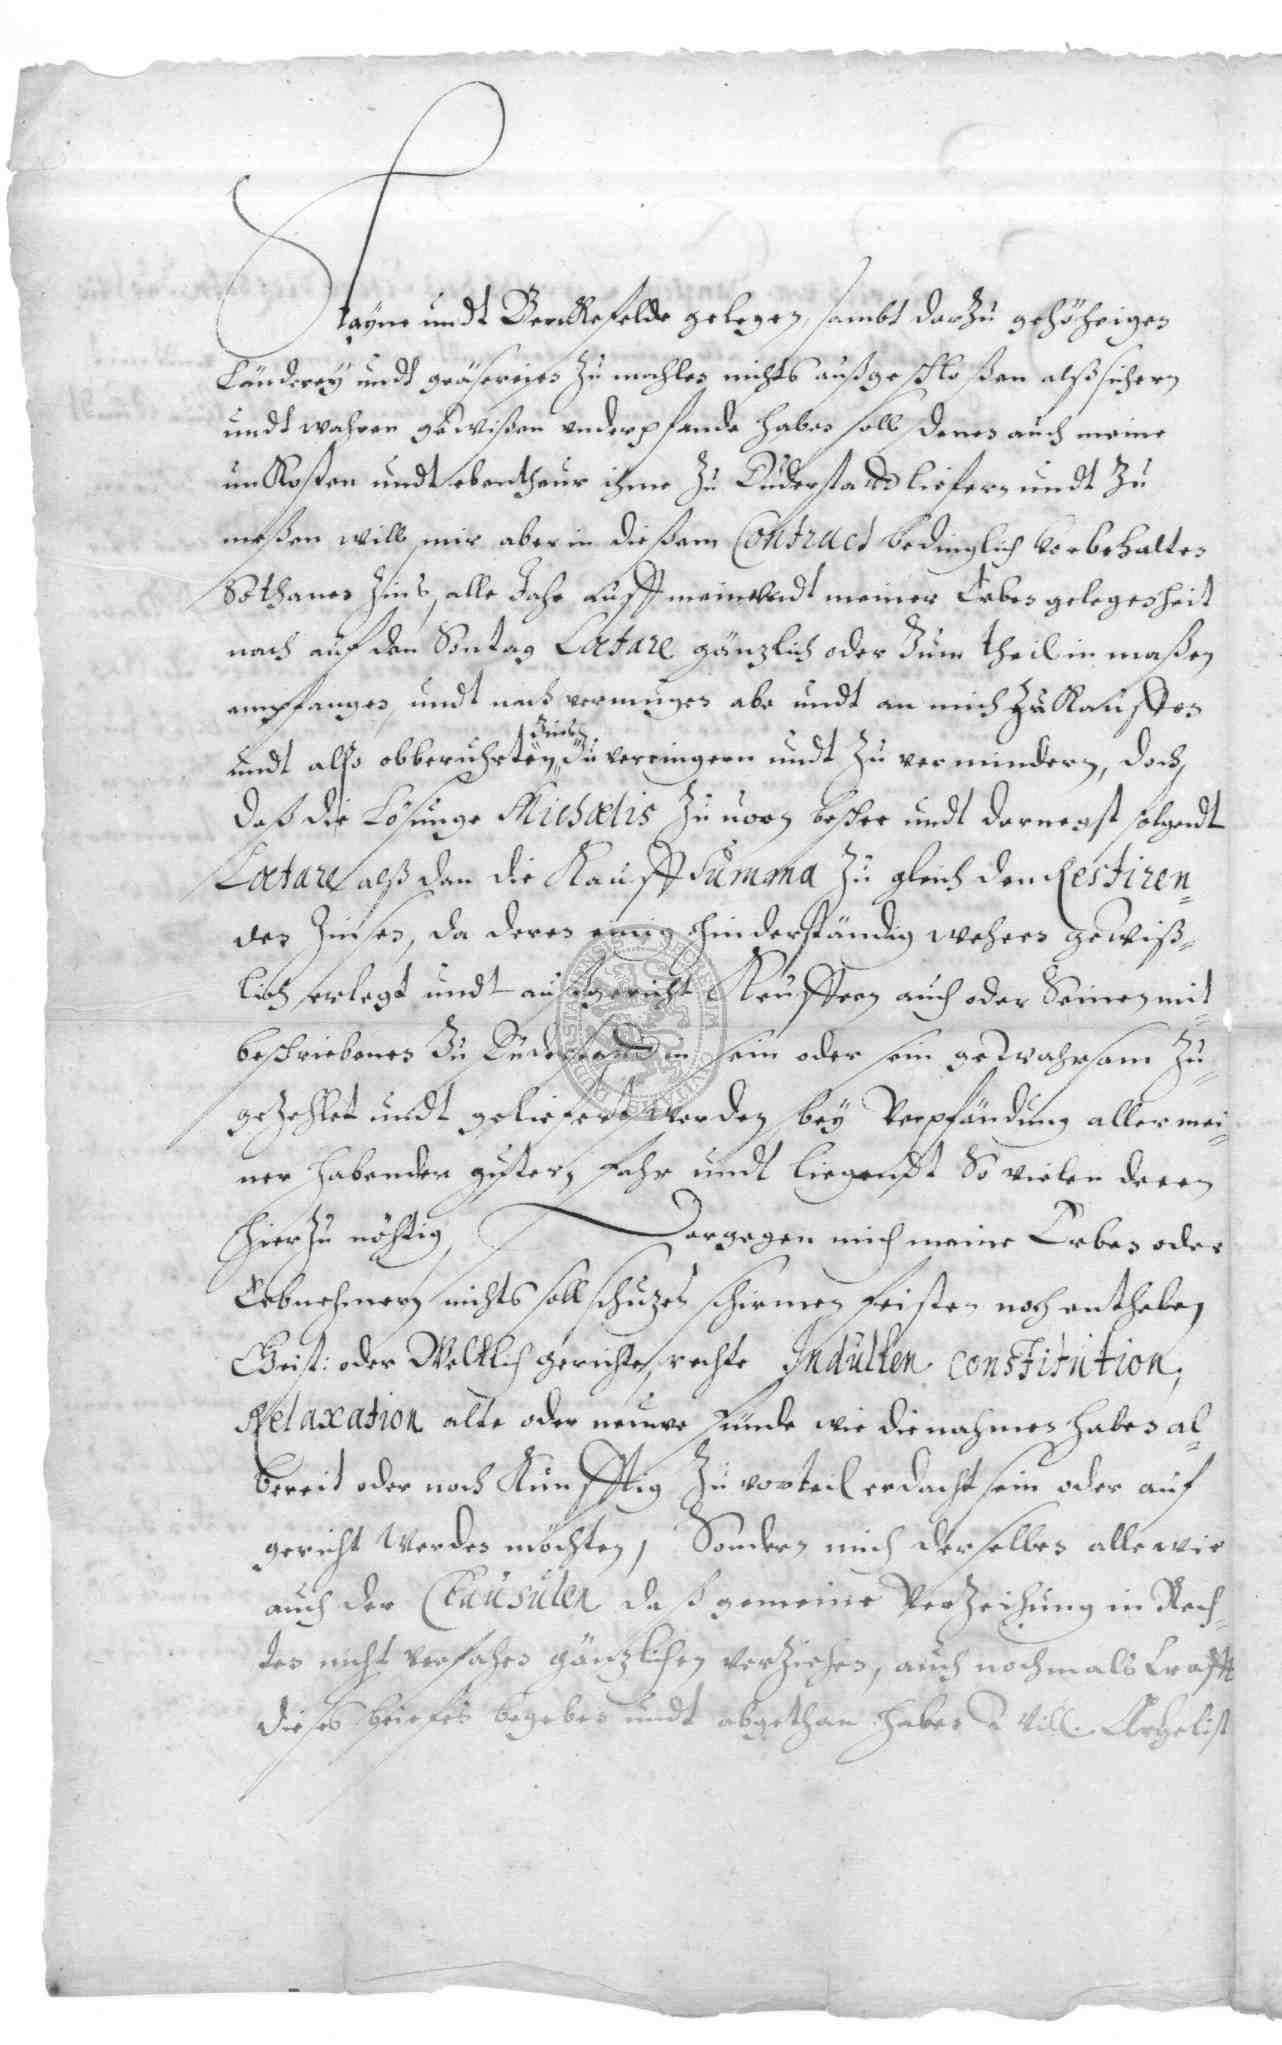 Hayne undt Berckefelde gelegen, sambt darzu gehöherigen
Länderey undt gräsereyen zu mahlen nichts außgeschloßen alß sichern
undt wahren gewißen underpfande haben soll denen auch meine
unkosten undt ebentheur ihme zu Duderstadt liefern undt zu
meßen will mir aber in dießem Contract bedinglich vorbehalten
Sothanen Zins, alle Jahr auff mein undt meiner Erben gelegenheit
nach auf den Sontag Lætare gänzlich oder zum theil in maßen
empfangen, undt nach vermugen abe undt an mich zu kauffen
undt also obberuhrten Zinß zu verringern undt zu vermindern, doch
daß die Lösunge Michaelis zuuorn beschee undt darnegst folgendt
Lætare alß dan die Kauff Summa zu gleich den Restiren-
den Zinsen, da deren einig hinderständig wehren gewiß-
lich erlegt undt außgericht Keuffern auch oder Seinen mit-
beschriebenen zu Duderstadt in sein oder sein gewahrsam zu-
gezehlet undt geliefert werden bey Verpfändung aller mei-
ner habenden guter, fahr undt liegendt So vielen deren
hierzu nöhtig, Dargegen mich meine Erben oder
Erbnehmern nichts soll schuzen schirmen fristen noch entheben
Geist: oder Weltlich gerichte, rechte Indulten constitution,
Relaxation alte oder neuwe funde wie die nahmen haben al-
bereit oder noch künfftig zu vorteil erdacht sein oder auf
gericht werden möchten, Sondern mich derselben alle wie
auch der Clausulen daß gemeine Verzeihung in Rech-
ten nicht verfahen gänzlichen verziehen, auch nochmals Krafft
dieses briefes begeben undt abgethan haben will. Argelist